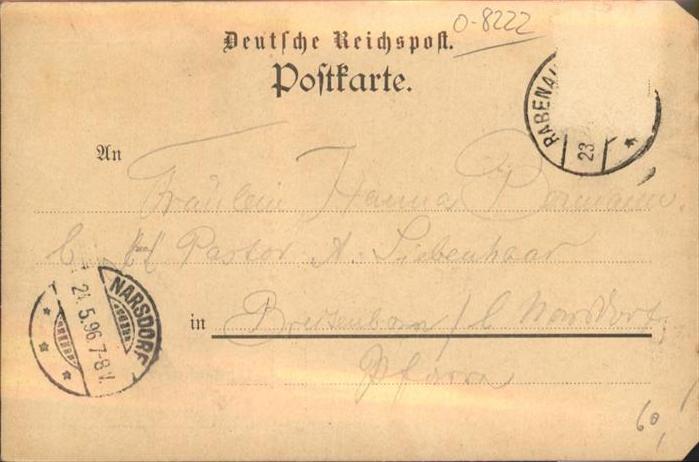 O-8222
Deutsche Reichspost.
Postkarte.
RABENAU
23
An
Fräulein Hanna
Pastor A. Siebenhaar
NARSDORF
24.5.96.7-8V.
in Breitenborn / b Narsdorf,
Pfarre
60,